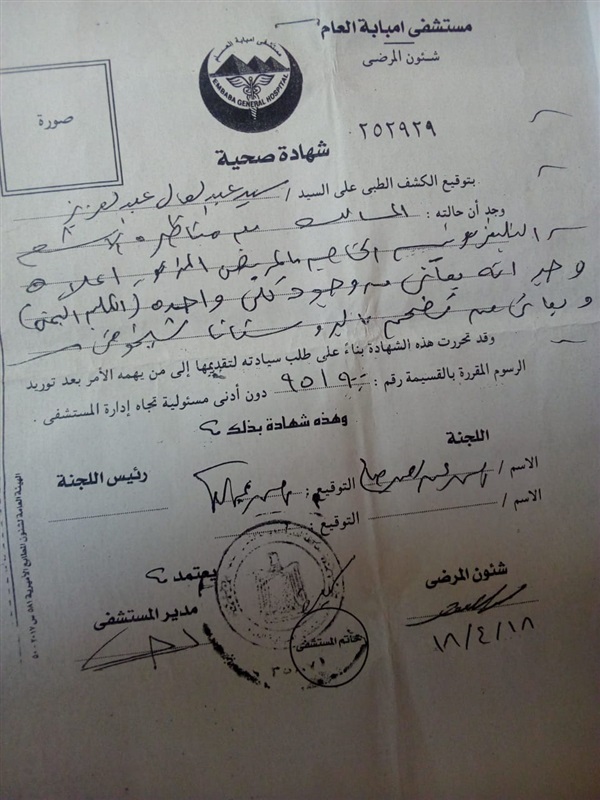 مستشفى امبابة العام
شئون المرضى
مستشفى امبابة العام
EMBABA GENERAL HOSPITAL
صورة
٢٥٢٩٢٩
شهادة صحية
بتوقيع الكشف الطبى على السيد / سيد عبد العال عبد العزيز
وجد أن حالته :
التليفزيونيه الخاصه بالمريض المذكور اعلاه
وجد انه يعانى من وجود كلى واحده (الكلى اليمنى)
ويعانى من تضخم بالبروستاتا شيخوخى
وقد تحررت هذه الشهادة بناءً على طلب سيادته لتقديمها إلى من يهمه الأمر بعد توريد
الرسوم المقررة بالقسيمة رقم : دون أدنى مسئولية تجاه إدارة المستشفى .
وهذه شهادة بذلك
اللجنة
رئيس اللجنة
الاسم / التوقيع :
الاسم / التوقيع :
شئون المرضى
يعتمد
مدير المستشفى
خاتم المستشفى
١٨/٤/١٨
الهيئة العامة لشئون المطابع الأميرية